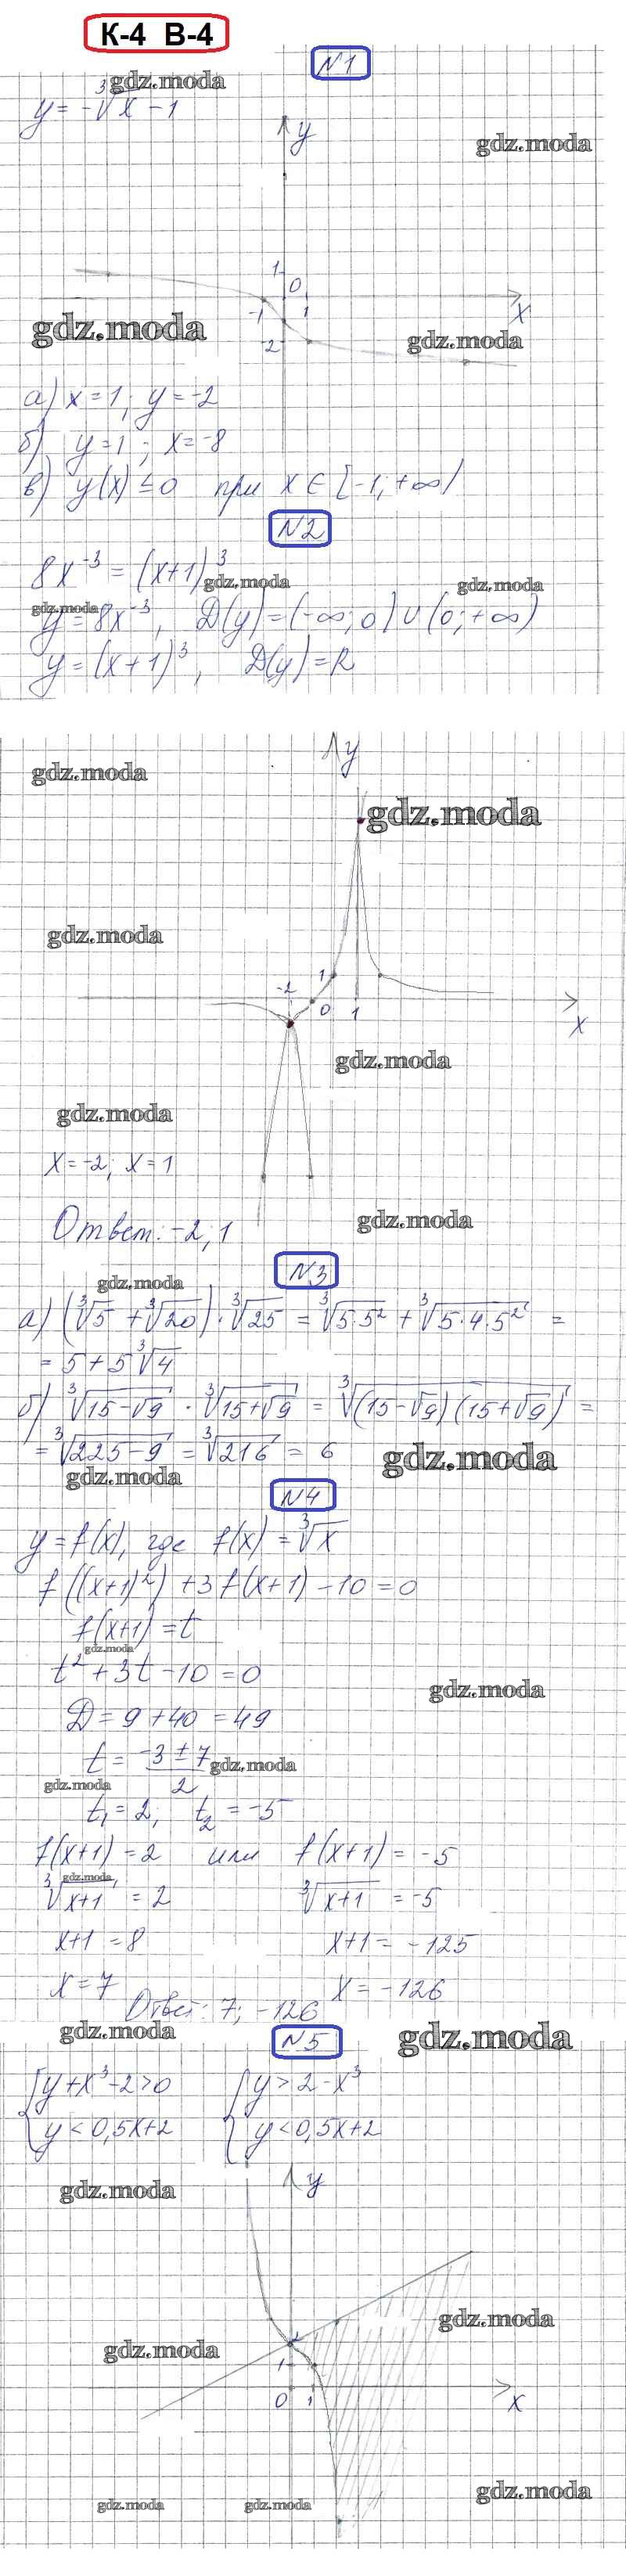 К-4 В-4
N1
gdz.moda
y = -∛x - 1
gdz.moda
y
1
0
-1
1
x
-2
gdz.moda
gdz.moda
а) x = 1; y = -2
б) y = 1; x = -8
в) y(x) ≤ 0 при x ∈ [-1; +∞)
N2
8x⁻³ = (x+1)³
gdz.moda
gdz.moda
gdz.moda
y = 8x⁻³, D(y) = (-∞; 0) ∪ (0; +∞)
y = (x+1)³, D(y) = R
y
gdz.moda
gdz.moda
gdz.moda
-2
1
0
1
x
gdz.moda
gdz.moda
x = -2; x = 1
gdz.moda
Ответ: -2, 1
N3
gdz.moda
а) (∛5 + ∛20) · ∛25 = ∛5·5² + ∛5·4·5² =
= 5 + 5∛4
б) ∛15-√9 · ∛15+√9 = ∛(15-√9)(15+√9) =
= ∛225-9 = ∛216 = 6
gdz.moda
gdz.moda
N4
y = f(x), где f(x) = ∛x
f((x+1)²) + 3f(x+1) - 10 = 0
f(x+1) = t
gdz.moda
t² + 3t - 10 = 0
gdz.moda
D = 9 + 40 = 49
t = -3 ± 7 / 2
gdz.moda
gdz.moda
t₁ = 2; t₂ = -5
f(x+1) = 2 или f(x+1) = -5
gdz.moda
∛x+1 = 2 ∛x+1 = -5
x+1 = 8 x+1 = -125
x = 7 x = -126
Ответ: 7; -126
gdz.moda
N5
gdz.moda
{y + x³ - 2 > 0 {y > 2 - x³
{y < 0,5x + 2 {y < 0,5x + 2
gdz.moda
y
gdz.moda
gdz.moda
2
1
0
1
x
gdz.moda
gdz.moda
gdz.moda